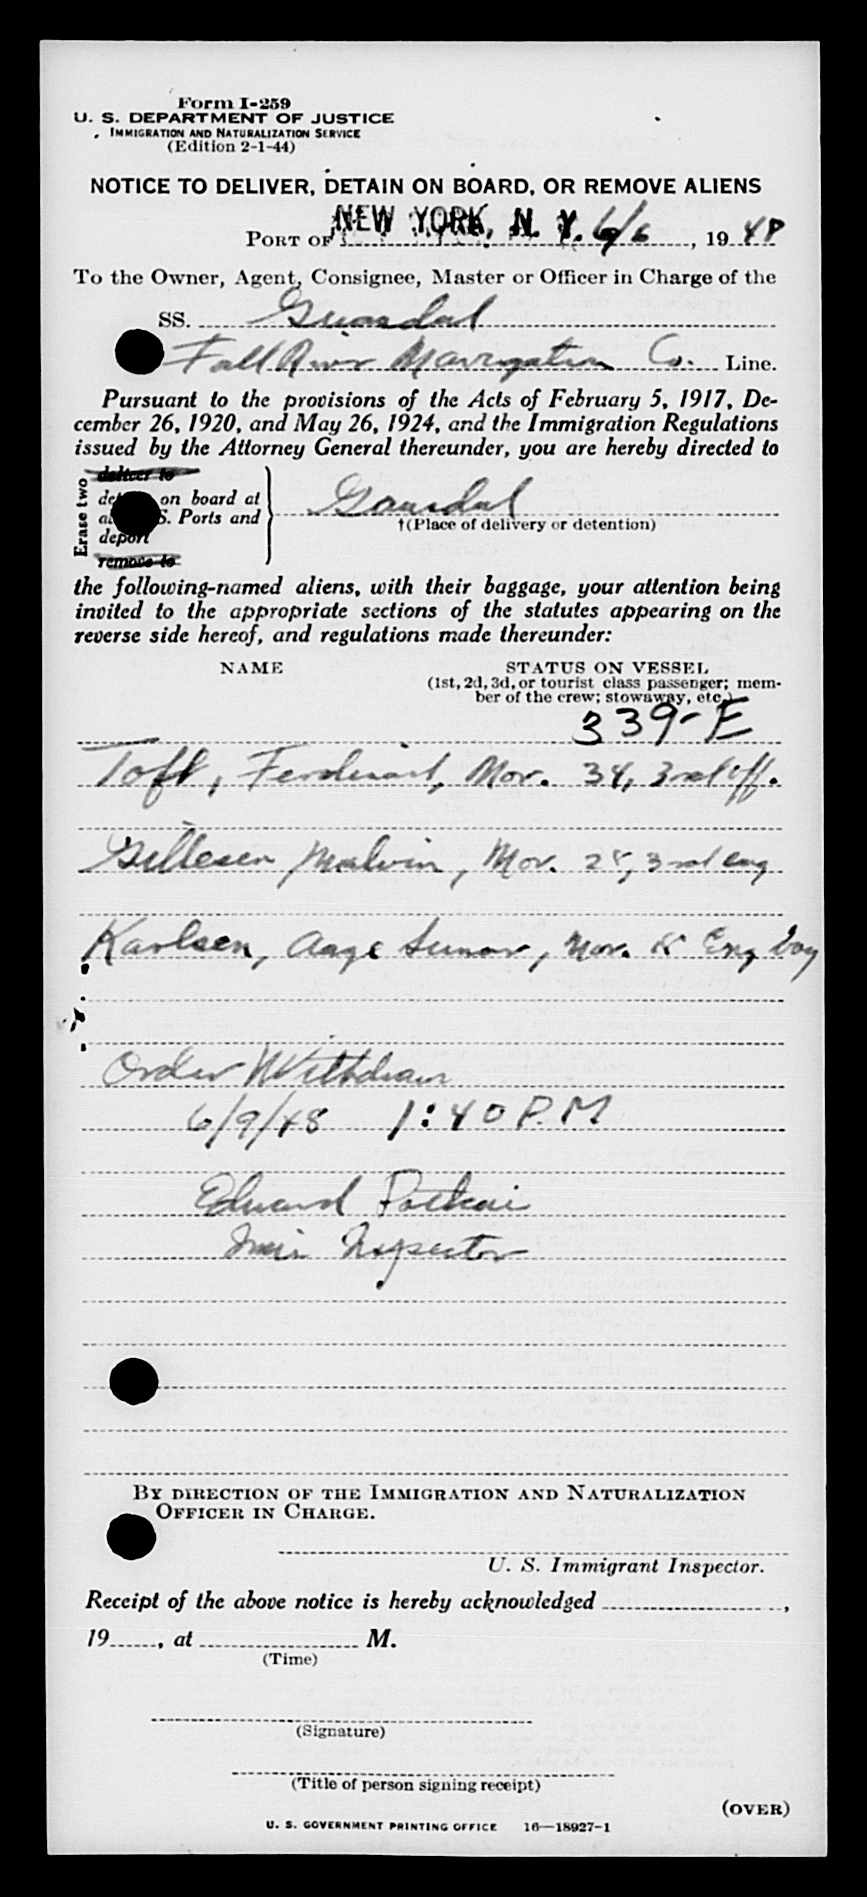 Form I-259
U. S. DEPARTMENT OF JUSTICE
IMMIGRATION AND NATURALIZATION SERVICE
(Edition 2-1-44)
NOTICE TO DELIVER, DETAIN ON BOARD, OR REMOVE ALIENS
PORT OF NEW YORK, N. Y. 6/6, 1948
To the Owner, Agent, Consignee, Master or Officer in Charge of the
SS.
Fall River Navigation Co. Line.
Pursuant to the provisions of the Acts of February 5, 1917, De-
cember 26, 1920, and May 26, 1924, and the Immigration Regulations
issued by the Attorney General thereunder, you are hereby directed to
Erase two
deliver to
on board at
S. Ports and
deport
remove to
†(Place of delivery or detention)
the following-named aliens, with their baggage, your attention being
invited to the appropriate sections of the statutes appearing on the
reverse side hereof, and regulations made thereunder:
NAME
STATUS ON VESSEL
(1st, 2d, 3d, or tourist class passenger; mem-
ber of the crew; stowaway, etc.)
339-E
Toft, Ferdinand, Nor. 34, 3rd off.
Gillesen Malvin, Nor. 25, 3rd eng
Karlsen, Aage Gunnar, Nor. Eng boy
Order Withdrawn
6/9/48 1:40 P.M
Edward
Imm Inspector
BY DIRECTION OF THE IMMIGRATION AND NATURALIZATION
OFFICER IN CHARGE.
U. S. Immigrant Inspector.
Receipt of the above notice is hereby acknowledged ,
19 , at M.
(Time)
(Signature)
(Title of person signing receipt)
(OVER)
U. S. GOVERNMENT PRINTING OFFICE 16—18927-1